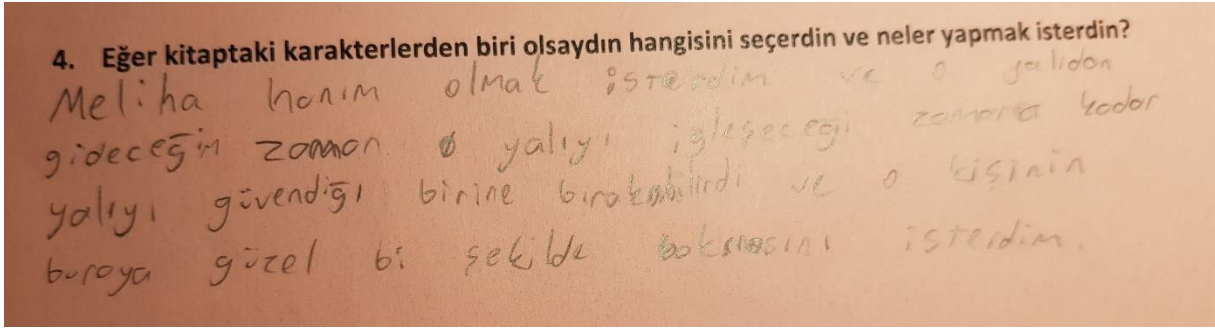 4. Eğer kitaptaki karakterlerden biri olsaydın hangisini seçerdin ve neler yapmak isterdin?
Meliha hanım olmak isterdim ve o yalıdan
gideceğim zaman o yalıyı zamana kadar
yalıyı güvendiği birine bırakabilirdi ve o kişinin
buraya güzel bi şekilde bakmasını isterdim.